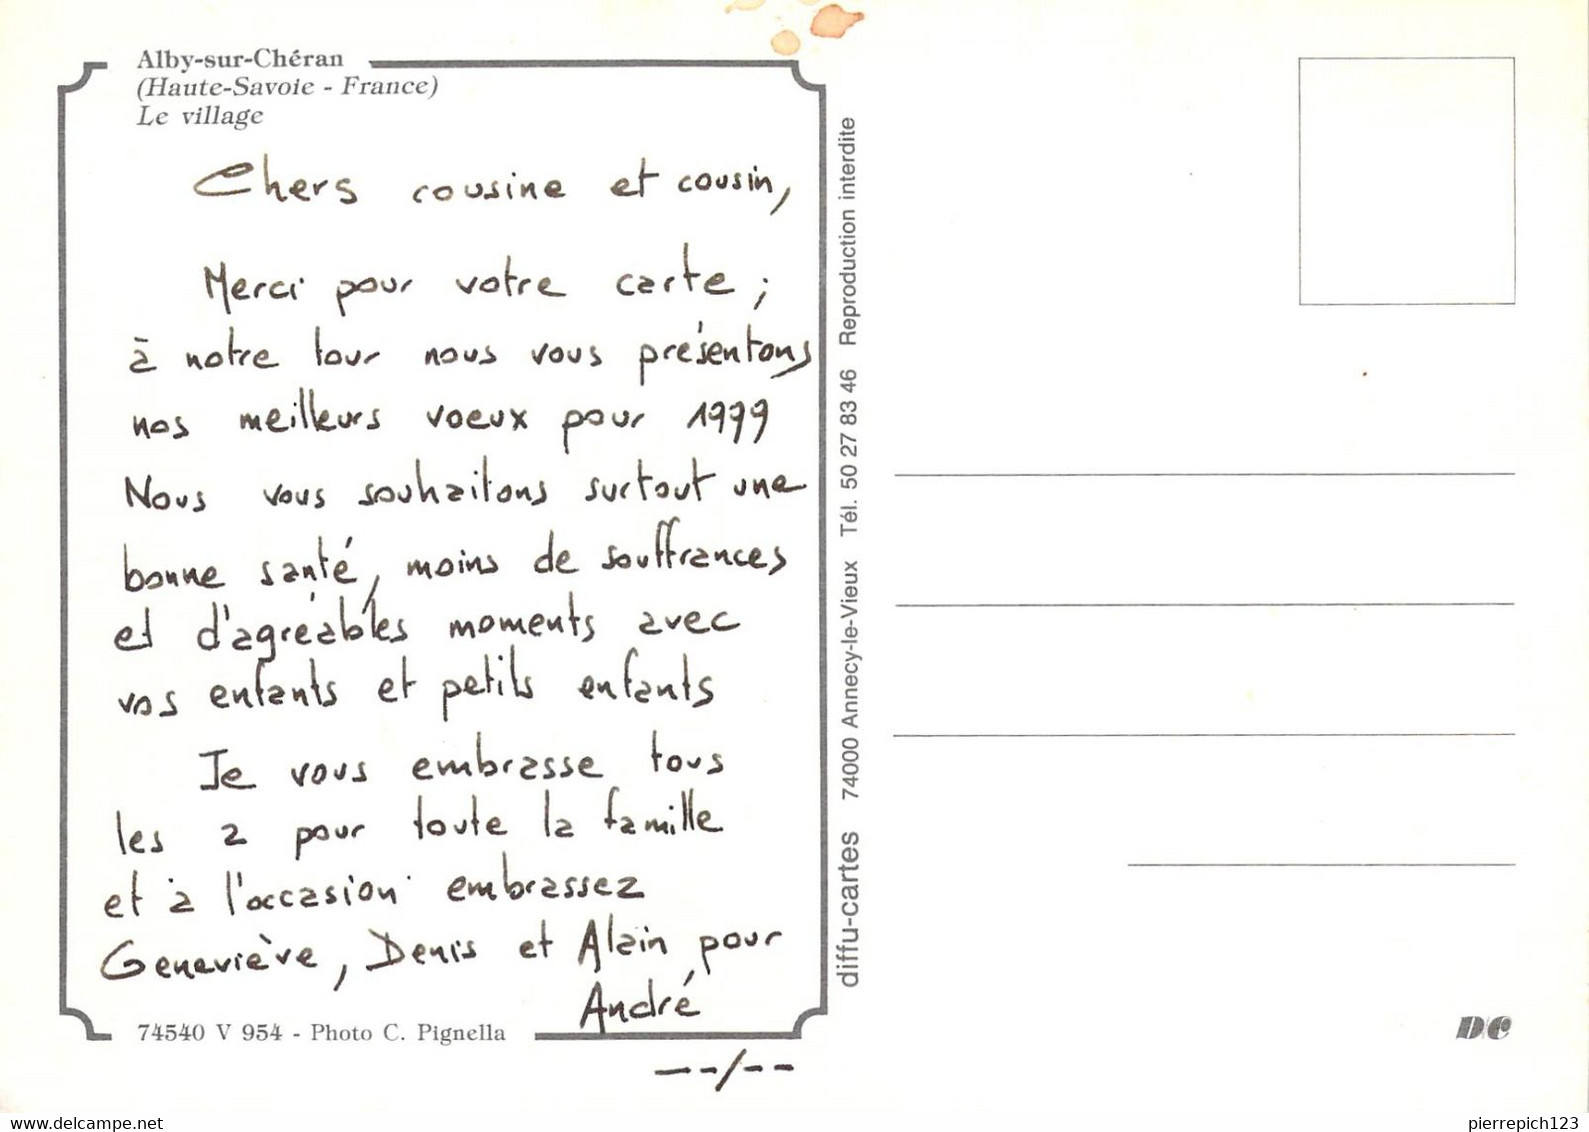 Alby-sur-Chéran
(Haute-Savoie - France)
Le village
Chers cousine et cousin,
Merci pour votre carte ;
à notre tour nous vous présentons
nos meilleurs voeux pour 1999
Nous vous souhaitons surtout une
bonne santé, moins de souffrances
et d'agréables moments avec
vos enfants et petits enfants
Je vous embrasse tous
les 2 pour toute la famille
et à l'occasion embrassez
Geneviève, Denis et Alain pour
André
74540 V 954 - Photo C. Pignella
diffu-cartes 74000 Annecy-le-Vieux Tél. 50 27 83 46 Reproduction interdite
D/C
pierrepich123